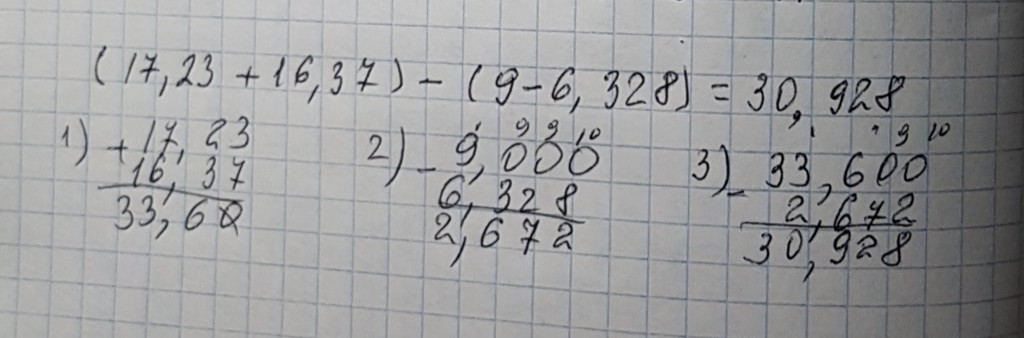 (17,23 + 16,37) - (9 - 6,328) = 30,928
1) + 17,23
16,37
33,60
2) - 9,000
9 9 10
6,328
2,672
3) - 33,600
9 10
2,672
30,928